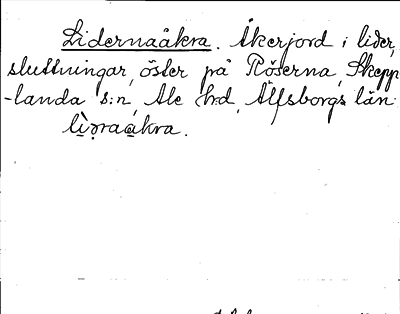 Lidernaåkra. Åkerjord i lider,
sluttningar, öster på Röserna, Skepp
-landa s:n, Ale h:d, Älfsborgs län.
lìd̥raåkra.